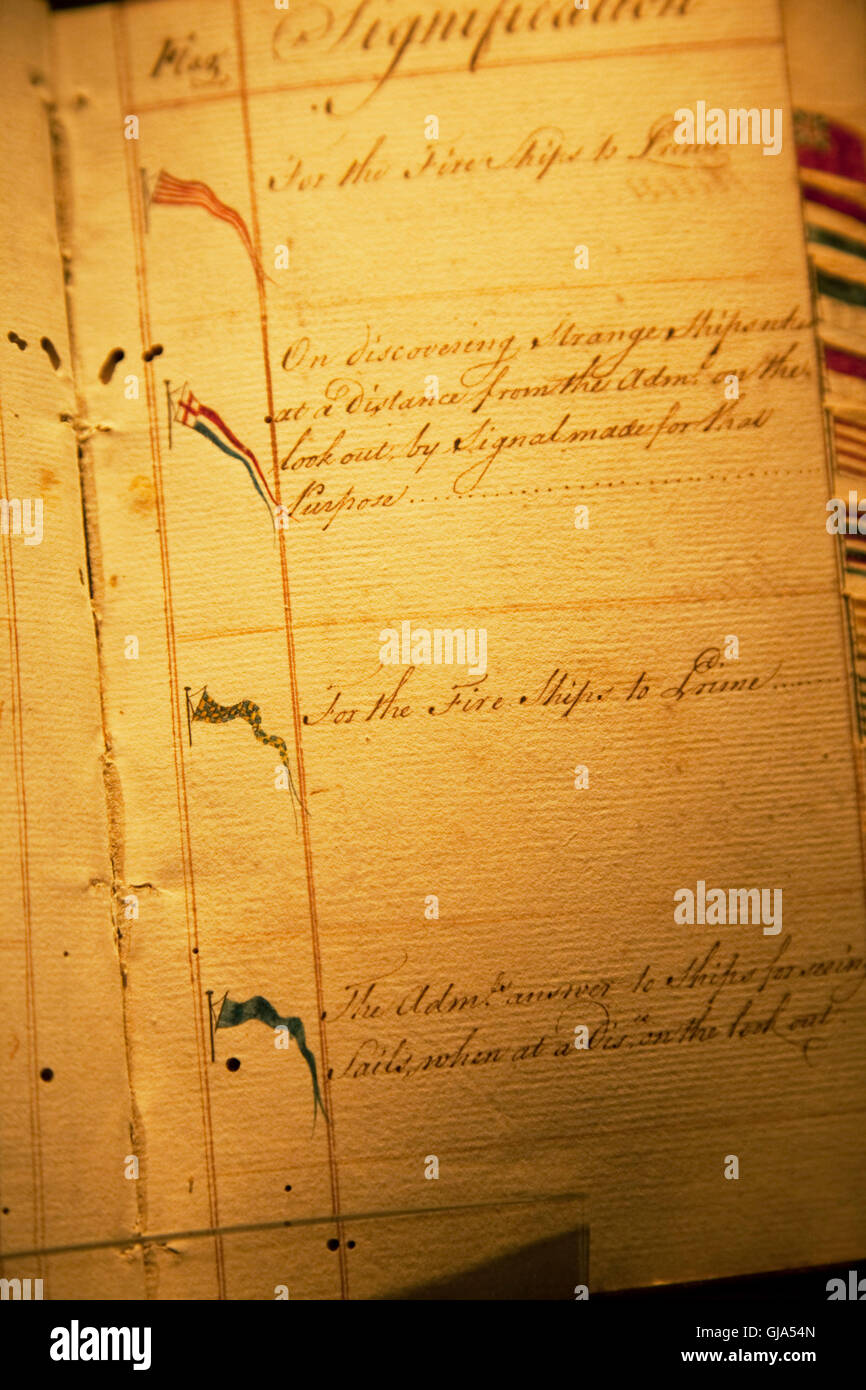 Flag
Signification
For the Fire Ships to Prime
On discovering Strange Ships
at a distance from the Adm.l on the
look out, by Signal made for that
Purpose
For the Fire Ships to Prime
The Adm.ls answer to Ships for seeing
Sails, when at a Dis.ce on the look out
alamy
Image ID: GJA54N
www.alamy.com